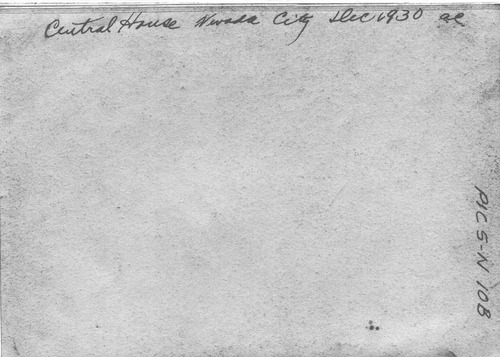 Central House Nevada City Dec 1930 ac
PICS-N 108